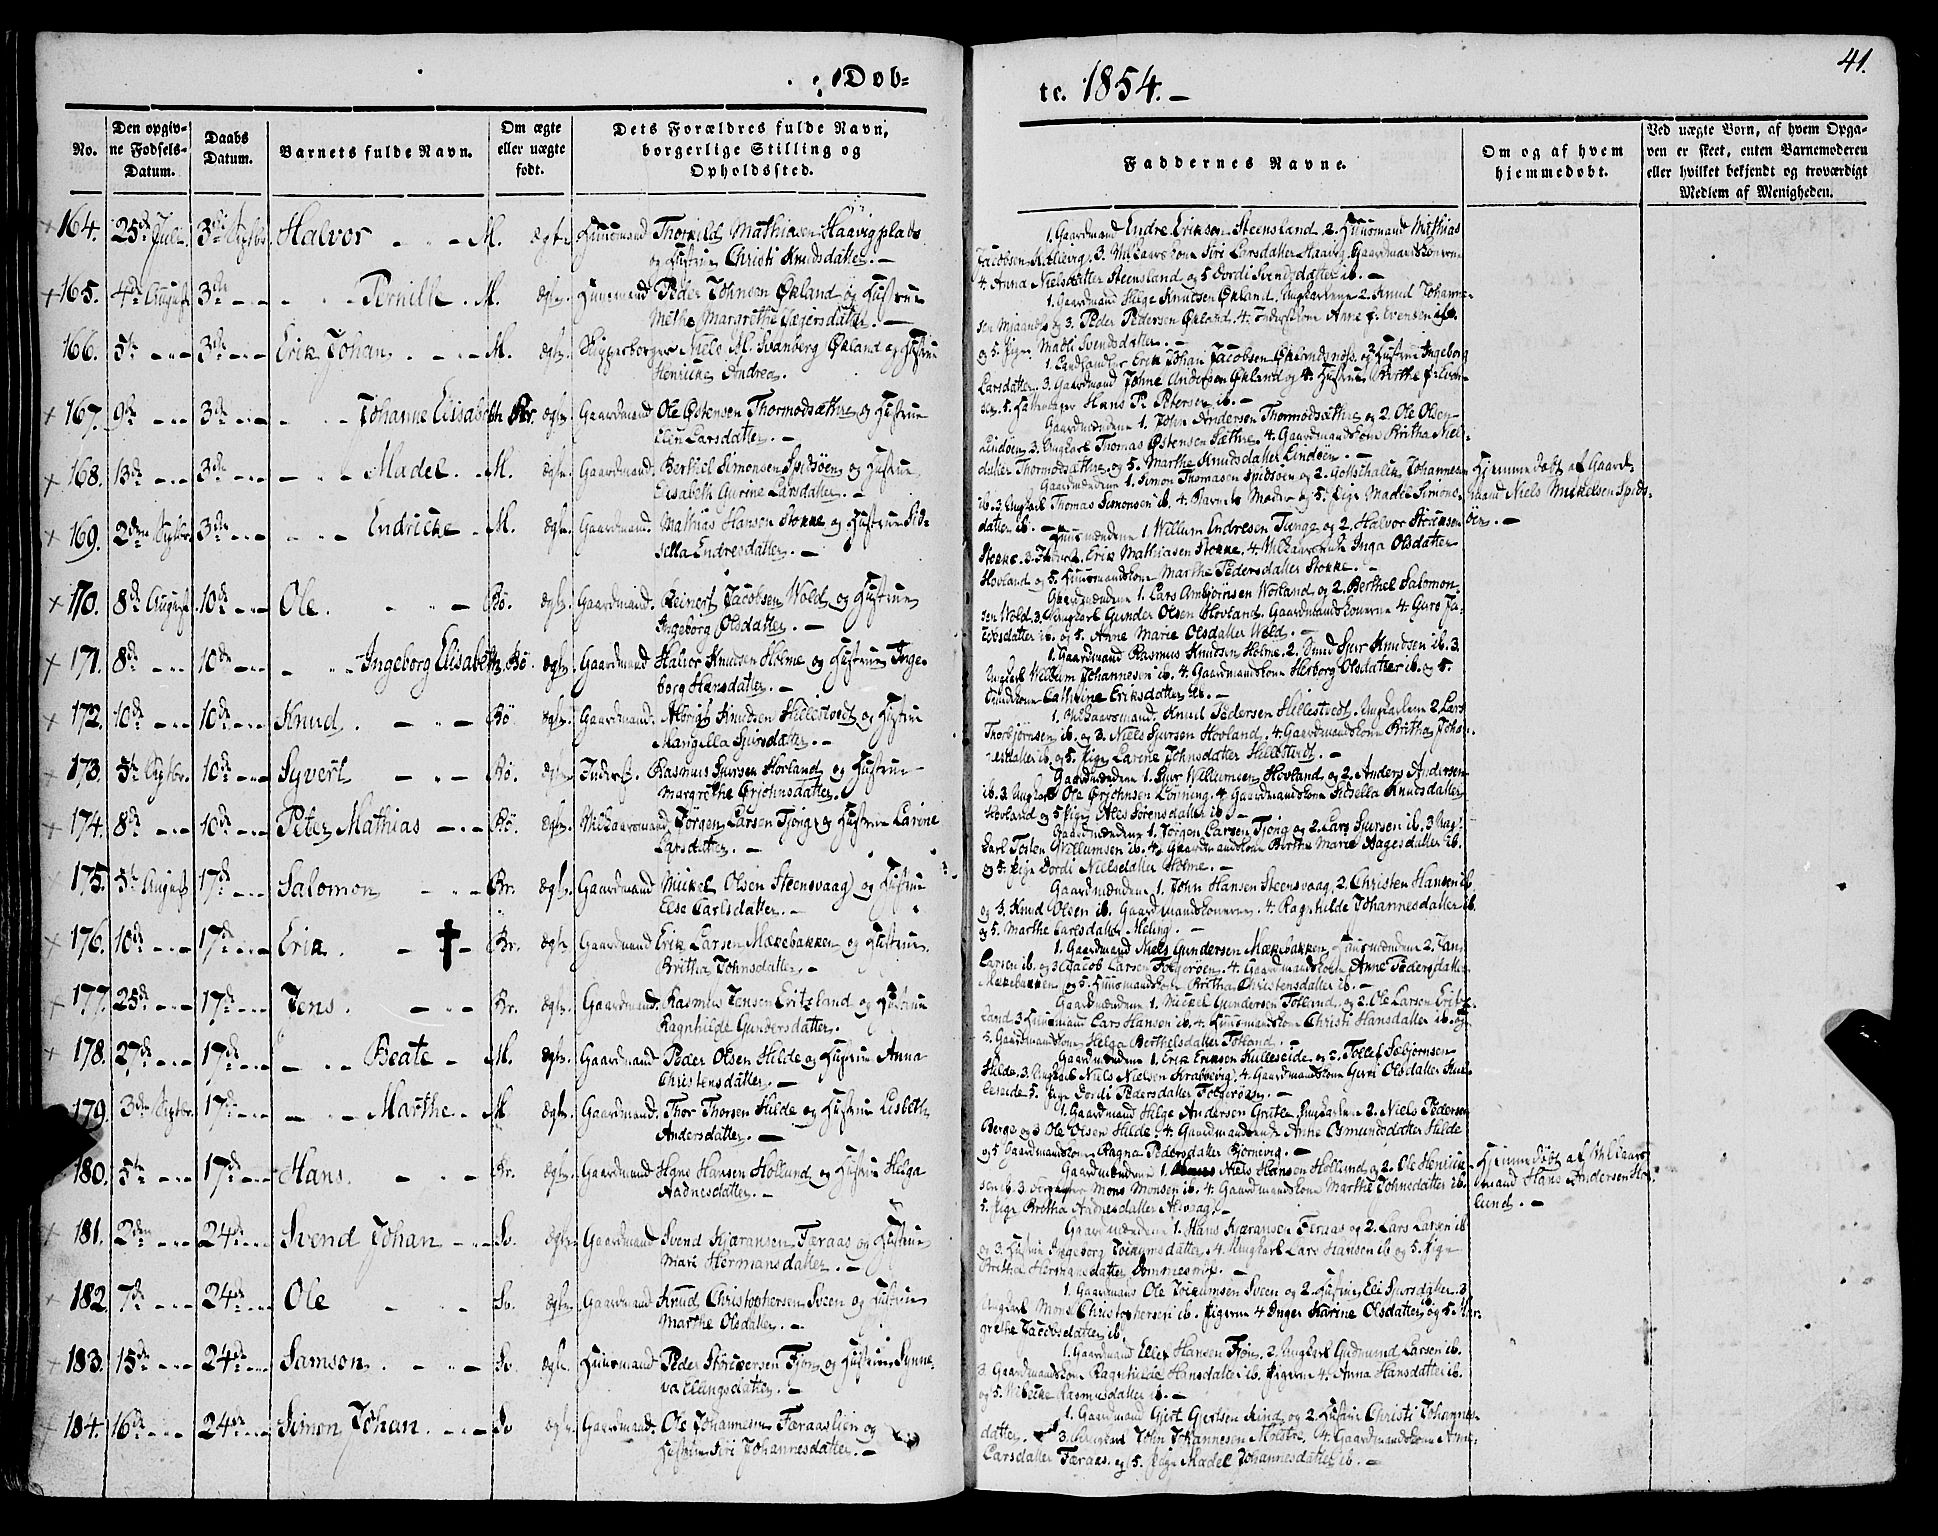 Døb-
No.
Den opgiv-
ne Fødsels-
Datum.
Daabs
Datum.
Barnets fulde Navn.
Om ægte
eller uægte
født.
Dets Forældres fulde Navn,
borgerlige Stilling og
Opholdssted.
164. 25de Juli 3die Halvor M. Ægte Huusmand Thorkild Mathiasen Haavigplads
og Hustrue Christi Knudsdatter.
165. 4de August 3die Pernille M. Ægte Huusmand Peder Johnsen Økland og Hustrue
Methe Margrethe
166. 5te 3die Erik Johan M. Ægte Niels M. Svanberg Økland og Hustrue
Henricke Andrea.
167. 9de 3die Johanne Elisabeth Br. Ægte Gaardmand Ole Østensen Thormodsæthre og Hustrue
Elen Larsdatter.
168. 13de 3die Madel M. Ægte Gaardmand Berthel Simonsen Spidsøen og Hustrue
Elisabeth Gurine Larsdatter.
169. 2den 3die Endricke M. Ægte Gaardmand Mathias Hansen Stokke og Hustrue Sid-
sella Endresdatter.
170. 8de August 10de Ole Bø. Ægte Gaardmand Reinert Jacobsen Wold og Hustrue
Ingeborg Olsdatter.
171. 8de 10de Ingeborg Elisabeth Bø Ægte Gaardmand Halvor Knudsen Holme og Hustrue Inge-
borg Hansdatter.
172. 10de 10de Knud Bø Ægte Gaardmand Knudsen Hillestvedt og Hustrue
Sjursdatter.
173. 5te 10de Syvert Bø. Ægte Inderst Rasmus Sjursen Hovland og Hustrue
Margrethe
174. 8de 10de Peter Mathias Bø. Ægte Vilkaarsmand Jørgen Larsen Tjong og Hustrue Larine
Larsdatter.
175. 5te August 17de Salomon Br. Ægte Gaardmand Mickel Olsen Steensvaag og Hustrue
Else Carlsdatter.
176. 10de 17de Erik Br. Ægte Gaardmand Erik Larsen Mækebakken og Hustrue
Britha Johnsdatter.
177. 25de 17de Jens Br. Ægte Gaardmand Rasmus Jensen Eritzland og Hustrue
Ragnhilde Gundersdatter.
178. 27de 17de Beate M. Ægte Gaardmand Peder Olsen Hilde og Hustrue Anna
Christensdatter.
179. 3die 17de Marthe M Ægte Gaardmand Thor Thorsen Hilde og Hustrue Lisbeth
Andersdatter.
180. 5te 17de Hans Br. Ægte Gaardmand Hans Hansen Hollund og Hustrue Helga
Aadnesdatter.
181. 2den 24de Svend Johan Sv. Ægte Gaardmand Svend Kjæransen Færaas og Hustrue
Mari Hermansdatter.
182. 7de 24de Ole Sv. Ægte Gaardmand Knud Christophersen Sveen og Hustrue
Marthe Olsdatter.
183. 15de 24de Samson Sv. Ægte Huusmand Peder Fjon og Hustrue Synne-
va Ellingsdatter.
184. 16de 24de Simon Johan Sv Ægte Gaardmand Ole Johannesen Færaaslien og
Hustrue Siri Johannesdatter.
41.
te. 1854.
Faddernes Navne.
Om og af hvem
hjemmedøbt.
Ved uægte Børn, af hvem Opga-
ven er skeet, enten Barnemoderen
eller hvilket bekjendt og troværdigt
Medlem af Menigheden.
1. Gaardmand Endre Eriksen Steensland 2. Huusmand Mathias
Jacobsen 3. Vilkaarskone Siri Larsdatter Haavig. Gaardmandskonerne
4. Anna Nielsdatter Steensland og 5 Dordi Svendsdatter ib.
1. Gaardmand Helge Knutsen Økland, Ungkarlene 2. Knud Johanne-
sen og 3. Peder Pedersen Økland. 4. Anne Evensen ib.
og 5. Pige Mathi Svendsdatter.
1. Landhandler Erik Johan Jacobsen og 2 Hustrue Ingeborg
Larsdatter. 3. Gaardmand Johne Andersen Økland og 4. Hustrue Berthe
5. Hans P. Petersen ib.
Gaardmændene 1. John Andersen Thormodsæthre og 2. Ole Olsen
Lindøen 3. Ungkarl Thomas Østensen Sæthre. 4. Gaardmandskone Britha Niel-
datter Thormodsæthre og 5. Marthe Knudsdatter Lindøen.
Gaardmændene 1. Simon Thomasen Spidsøen og 2. Gotschalk Johannesen
ib. 3. Ungkarl Thomas Simonsen ib. 4. Barnets Moder og 5. Pige Madel Simons-
datter ib.
Hjemmedøbt af Gaard-
mand Niels Mikelsen Spids-
øen.
Huusmændene 1. Willum Endresen Tunge og 2. Halvor
Stokke. 3. Erik Mathiasen Stokke. 4. Inga Olsdatter
Hovland og 5. Huusmandskone Marthe Pedersdatter Stokke.
Gaardmændene 1. Lars og 2. Berthel Salomon-
sen Wold. 3. Ungkarl Gunder Olsen Hovland. Gaardmandskonerne 4. Guro Ja-
cobsdatter ib. og 5. Anne Marie Olsdatter Wold.
1. Gaardmand Rasmus Knudsen Holme. 2. Sjur Knudsen ib. 3.
Ungkarl Willum Johannesen ib. 4. Gaardmandskone Herborg Olsdatter ib. og 5.
Cathrine Eriksdatter ib.
1. Vilkaarsmand Knud Pedersen Hillestvedt. Ungkarlene 2. Lars
Thorbjørnsen ib. og 3. Niels Sjursen Hovland. 4. Gaardmandskone Britha Johan-
nesdatter ib. og 5. Pige Larine Johnsdatter Hillestvedt.
Gaardmændene 1. Sjur Willumsen Hovland og 2. Anders Andersen
ib. 3. Ungkarl Ole Lønning. 4. Gaardmandskone Sidsella Knudsdatter
Hovland og 5 Pige Ales Sørensdatter ib.
Gaardmændene 1. Jørgen Larsen Tjong og 2. Lars Sjursen ib. 3. Ung-
karl Tosten Willumsen ib. 4. Gaardmandskone Berthe Marie Aagesdatter ib.
og 5. Pige Dordi Nielsdatter Holme.
Gaardmændene 1. John Hansen Steensvaag, 2. Christen Hansen ib.
og 3. Knud Olsen ib. Gaardmandskonerne 4. Ragnhilde Johannesdatter ib.
og 5. Marthe Carlsdatter Meling.
1. Gaardmand Niels Gundersen Mækebakken, Huusmændene 2. Jan
Larsen ib. og 3. Jacob Larsen Folgerøen. 4. Gaardmandskone Anne Pedersdatter
Mækebakken og 5. Huusmandskone Britha Christensdatter ib.
Gaardmændene 1. Mickel Gundersen Totland, og 2. Ole Larsen Eritz-
land 3. Huusmand Lars Hansen ib. 4. Huusmandskone Christi Hansdatter ib. og
5. Gaardmandskone Helga Berthelsdatter Totland.
Gaardmændene 1. Erik Eriksen Kulleseide og 2. Tollef Sæbjørnsen
Hilde. 3. Ungkarl Niels Nielsen Krabbevig. 4. Gaardmandskone Guri Olsdatter Kul-
leseide 5. Pige Dordi Pedersdatter Folgerøen.
1. Gaardmand Helge Andersen Ungkarlene 2. Niels Pedersen
Berge og 3 Ole Olsen Hilde. 4. Anne Osmundsdatter Hilde
og 5 Gaardmandskone Ragna Pedersdatter Bjørnevig.
Gaardmændene 1. Niels Hansen Hollund og 2. Ole Henrik-
sen ib. 3. Mons Monsen ib. 4. Gaardmandskone Marthe Johnsdatter ib.
5. Pige Britha Aadnesdatter
Hjemmedøbt af Vilkaars-
mand Hans Andersen Hol-
lund.
Gaardmændene 1. Hans Kjæransen Færaas og 2. Lars Larsen ib.
og 3. Hustrue Ingeborg 4. Ungkarl Lars Hansen ib og 5. Pige
Britha Hermansdatter
1. Gaardmand Ole Sveen og 2. Hustrue Eli Sjursdatter. 3
Ungkarl Mons Christophersen ib. Pigerne 4 Inger Karine Olsdatter og 5. Mar-
grethe Jacobsdatter ib.
1. Gaardmand Elling Hansen Fjon, 2. Ungkarl Gudmund Larsen ib.
3. Gaardmandskone Ragnhilde Hansdatter ib. Pigerne 4. Anna Hansdatter ib.
og 5. Rasmusdatter ib.
1. Gaardmand Gjert Gjertsen og 2. Hustrue Christi Johannes-
datter. 3. Ungkarl John Johannesen 4. Gaardmandskone Anne
Larsdatter Færaas og 5. Pige Madel Johannesdatter ib.